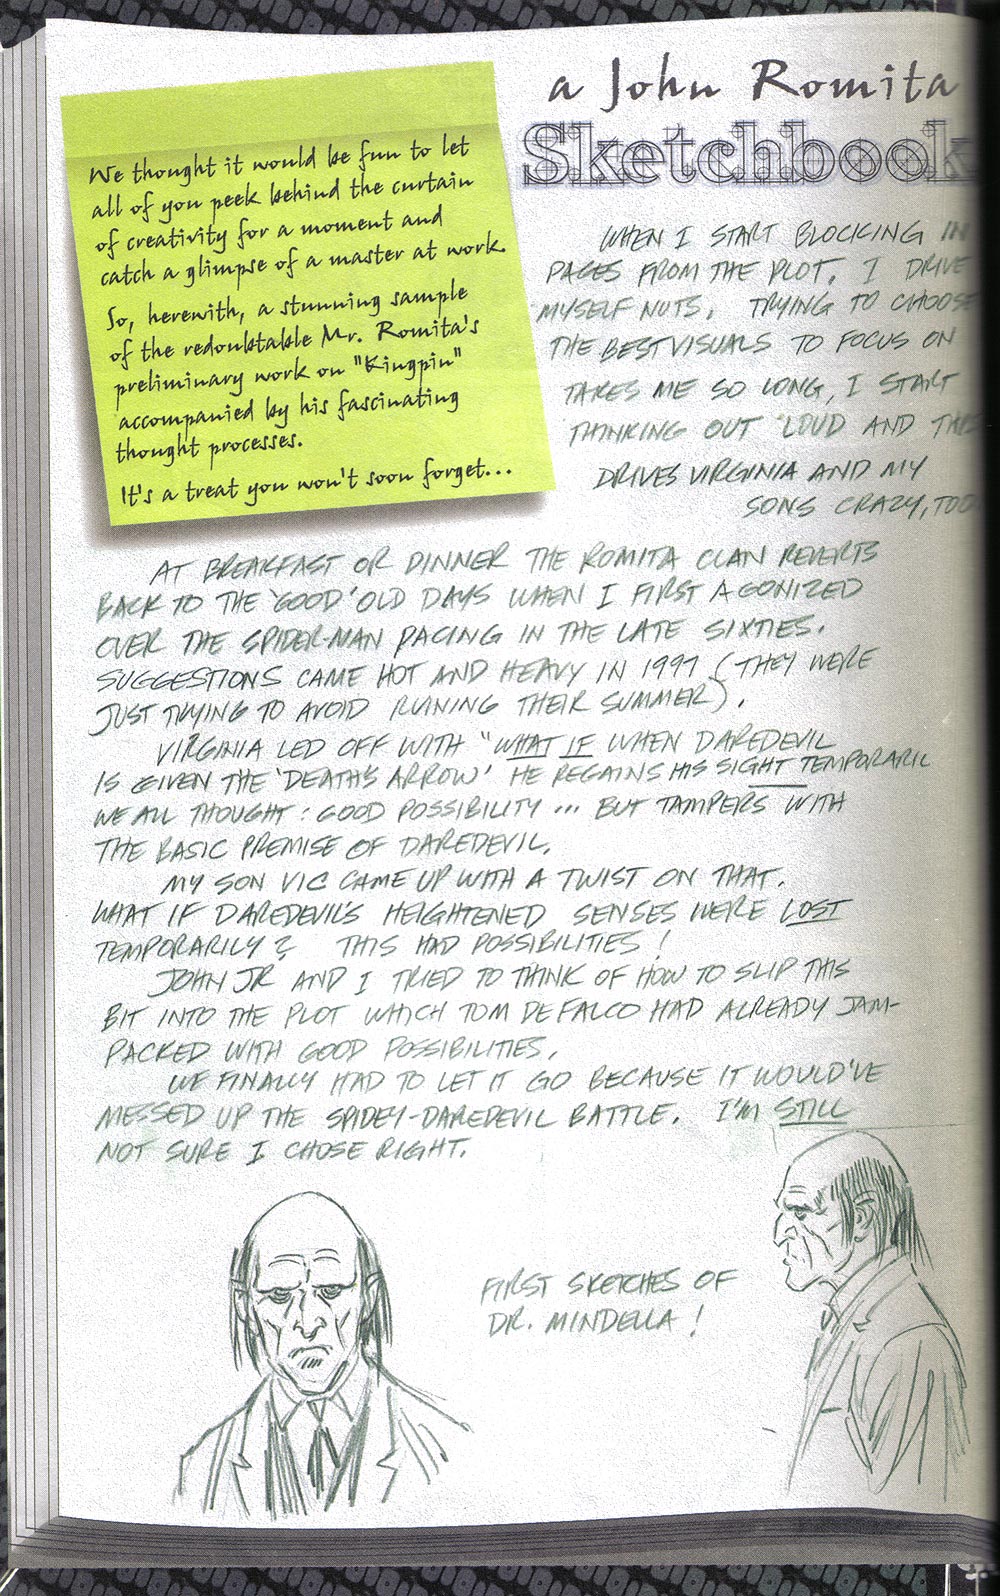 We thought it would be fun to let
all of you peek behind the curtain
of creativity for a moment and
catch a glimpse of a master at work.
So, herewith, a stunning sample
of the redoubtable Mr. Romita's
preliminary work on "Kingpin"
accompanied by his fascinating
thought processes.
It's a treat you won't soon forget...
a John Romita
Sketchbook
WHEN I START BLOCKING IN
PAGES FROM THE PLOT, I DRIVE
MYSELF NUTS. TRYING TO CHOOSE
THE BEST VISUALS TO FOCUS ON
TAKES ME SO LONG, I START
THINKING OUT 'LOUD AND THIS
DRIVES VIRGINIA AND MY
SONS CRAZY, TOO
AT BREAKFAST OR DINNER THE ROMITA CLAN REVERTS
BACK TO THE 'GOOD' OLD DAYS WHEN I FIRST AGONIZED
OVER THE SPIDER-MAN PACING IN THE LATE SIXTIES.
SUGGESTIONS CAME HOT AND HEAVY IN 1997 (THEY WERE
JUST TRYING TO AVOID RUINING THEIR SUMMER).
VIRGINIA LED OFF WITH "WHAT IF WHEN DAREDEVIL
IS GIVEN THE 'DEATH'S ARROW' HE REGAINS HIS SIGHT TEMPORARIL
WE ALL THOUGHT: GOOD POSSIBILITY ... BUT TAMPERS WITH
THE BASIC PREMISE OF DAREDEVIL.
MY SON VIC CAME UP WITH A TWIST ON THAT.
WHAT IF DAREDEVIL'S HEIGHTENED SENSES WERE LOST
TEMPORARILY? THIS HAD POSSIBILITIES!
JOHN JR AND I TRIED TO THINK OF HOW TO SLIP THIS
BIT INTO THE PLOT WHICH TOM DEFALCO HAD ALREADY JAM-
PACKED WITH GOOD POSSIBILITIES.
WE FINALLY HAD TO LET IT GO BECAUSE IT WOULD'VE
MESSED UP THE SPIDEY-DAREDEVIL BATTLE. I'M STILL
NOT SURE I CHOSE RIGHT.
FIRST SKETCHES OF
DR. MINDELLA!